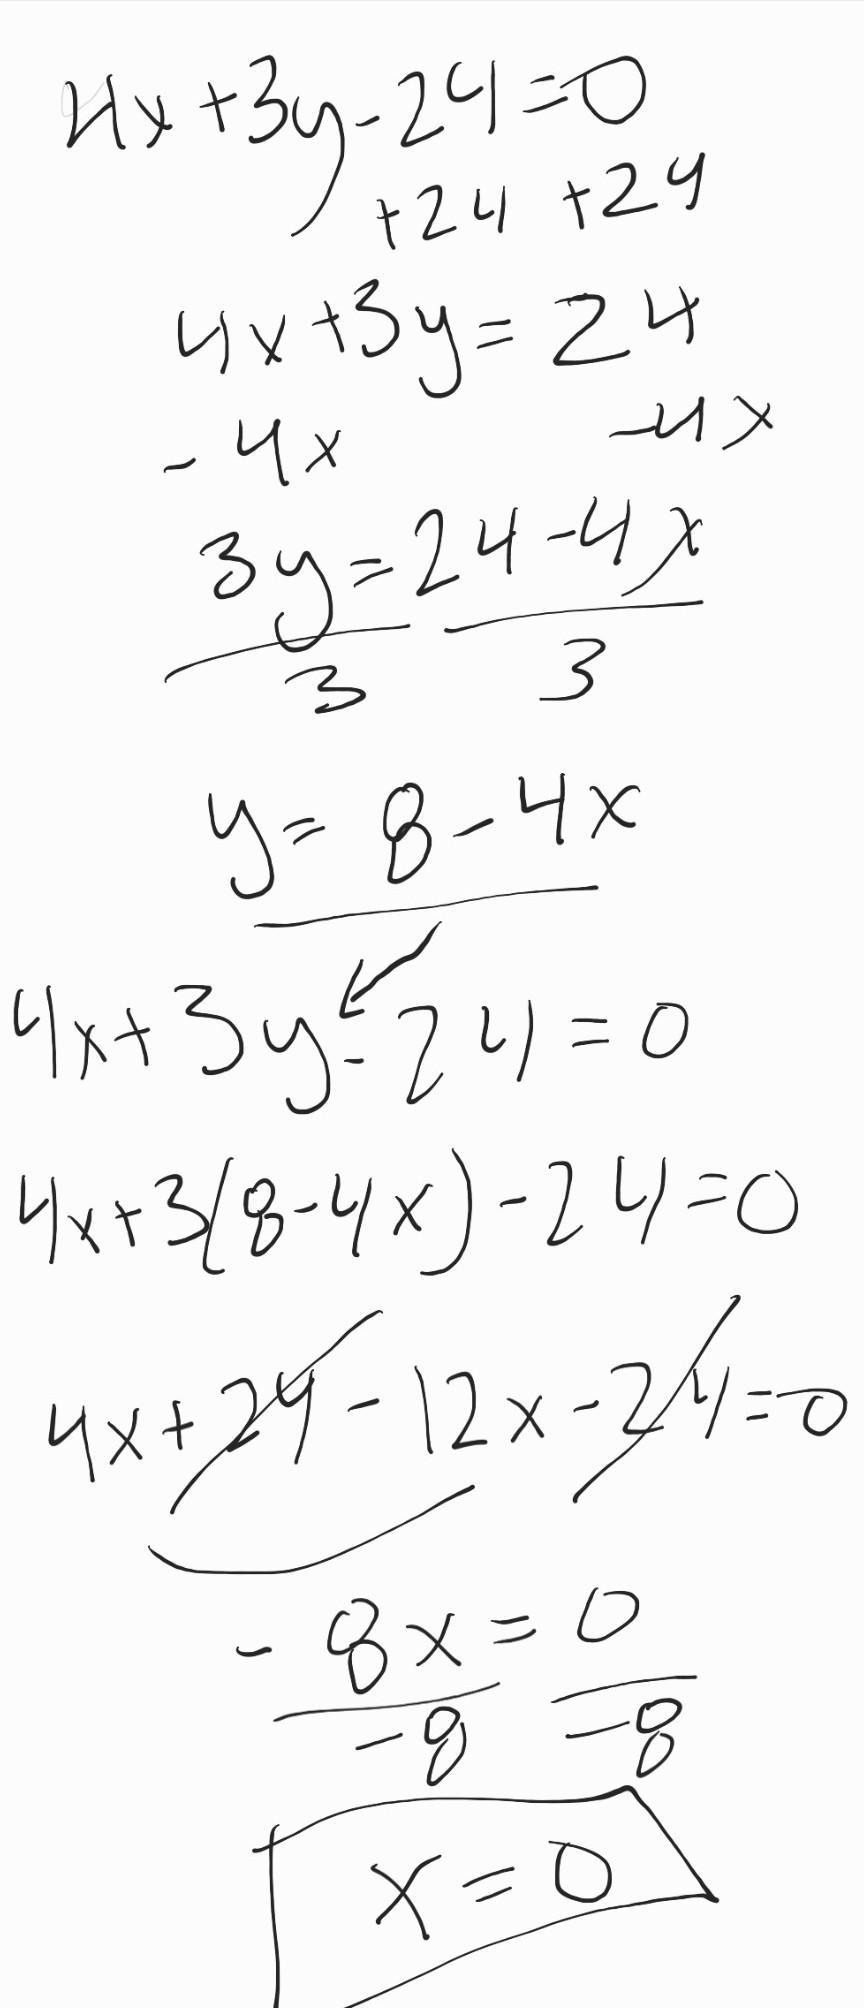 4x+3y-24=0
+24 +24
4x+3y=24
-4x -4x
3y=24-4x
3 3
y=8-4x
4x+3y-24=0
4x+3(8-4x)-24=0
4x+24-12x-24=0
-8x=0
-8 -8
x=0